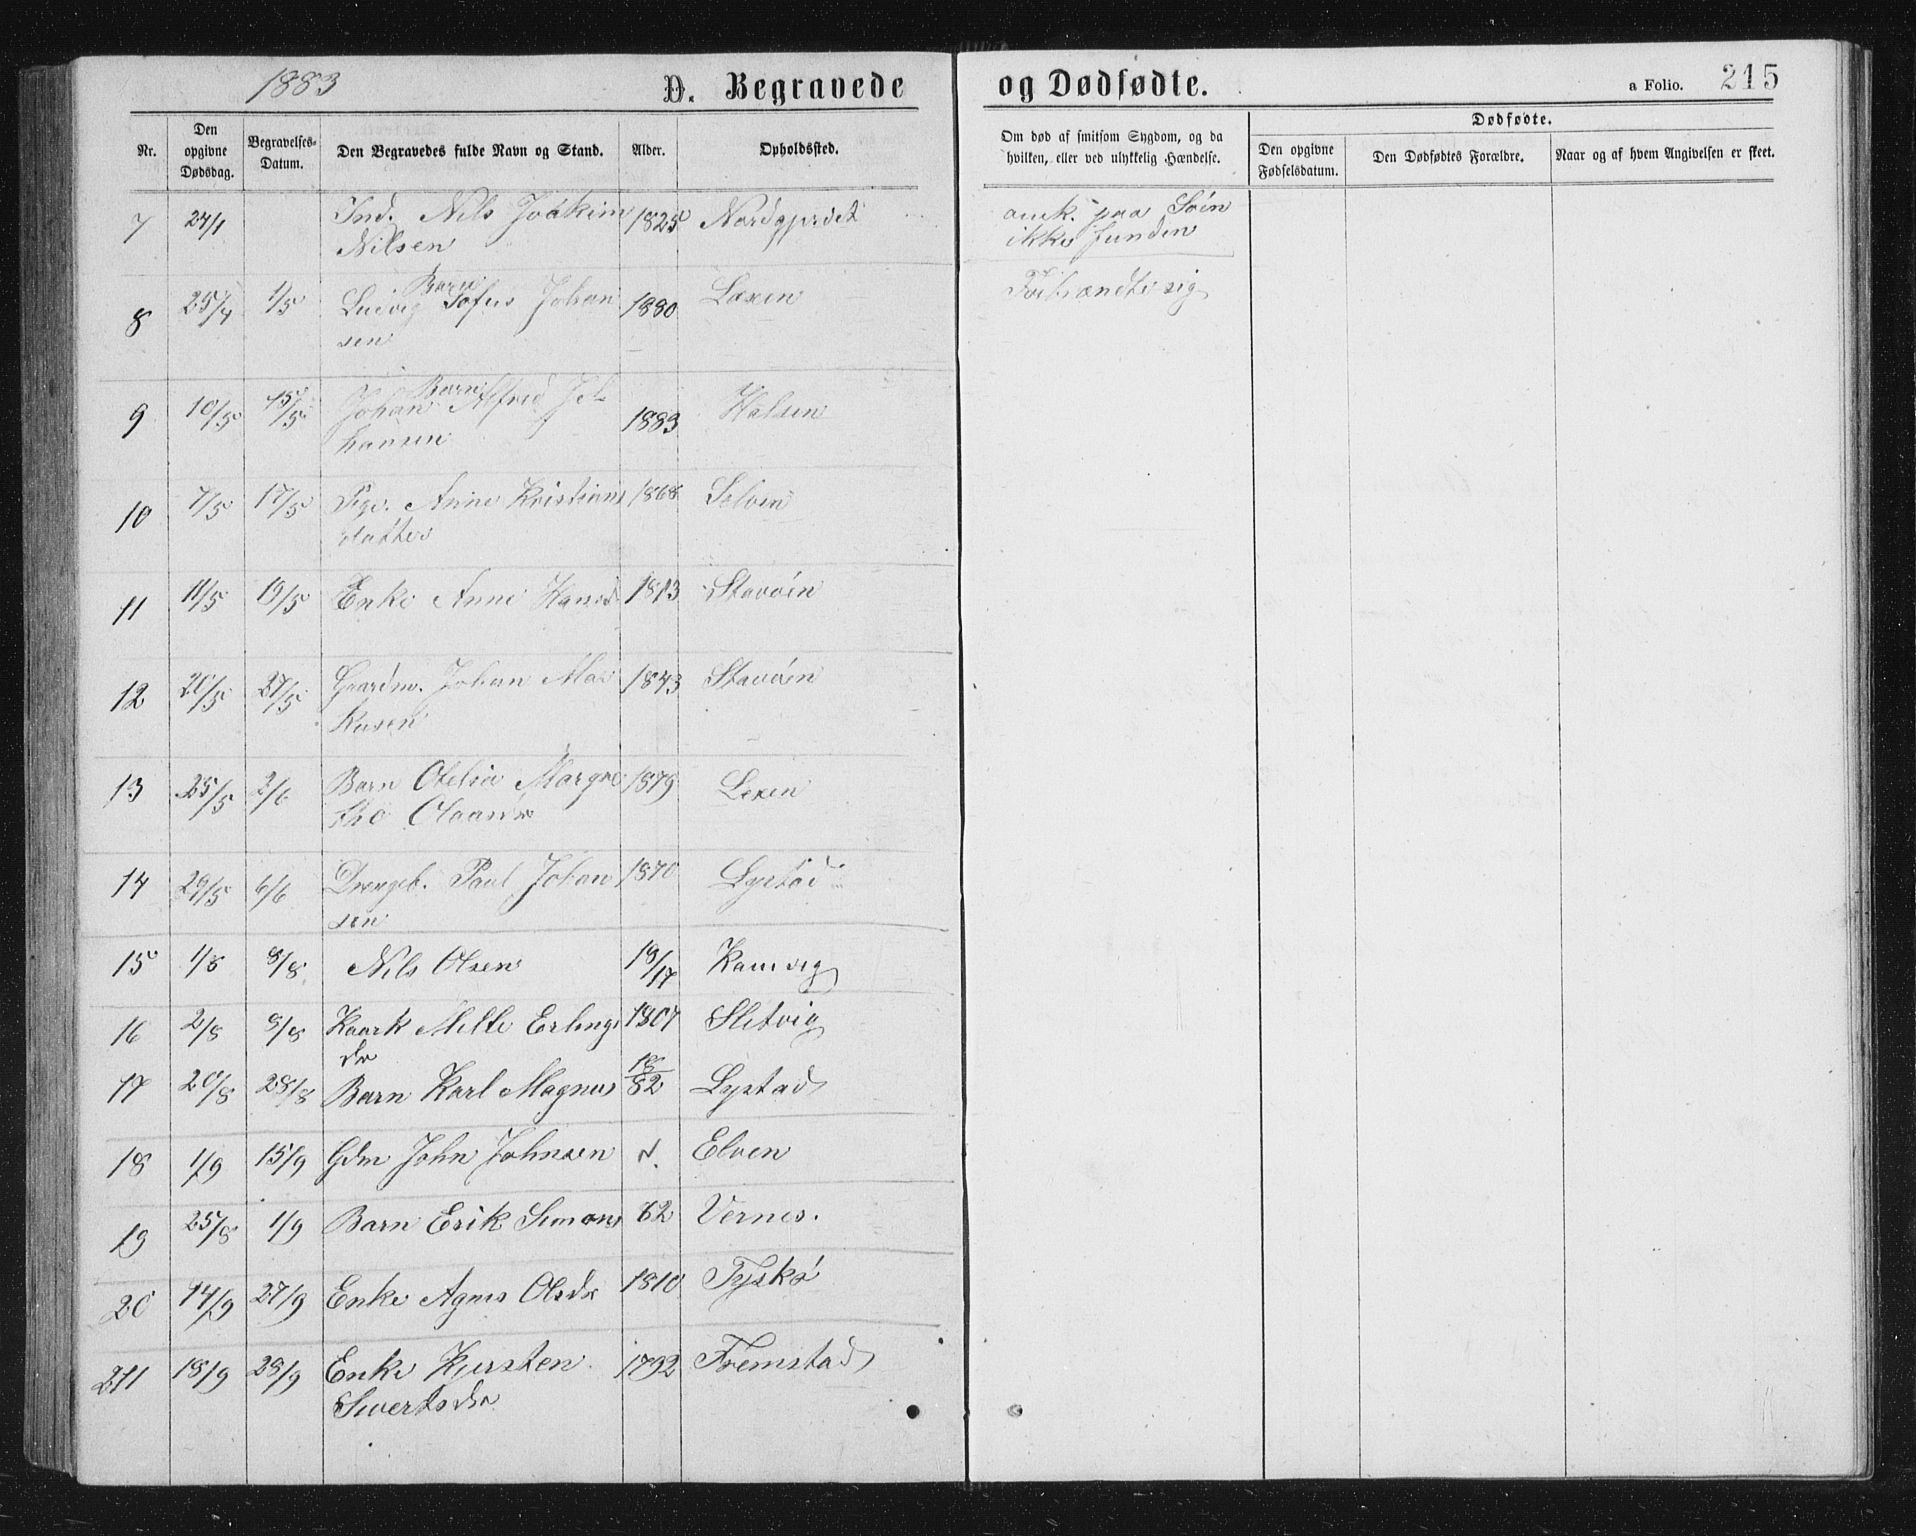 1883
D. Begravede og Dødfødte.
a Folio. 215
Nr.
Den opgivne Dødsdag.
Begravelses-Datum.
Den Begravedes fulde Navn og Stand.
Alder.
Opholdssted.
Om død af smitsom Sygdom, og da hvilken, eller ved ulykkelig Hændelse.
Dødfødte.
Den opgivne Fødselsdatum.
Den Dødfødtes Forældre.
Naar og af hvem Angivelsen er skeet.
7 24/1 Ind. Nils Joakim 1825 omk. paa Söen
Nilsen ikke funden
Barn
8 25/4 1/5 Ludvig Tofus Johan 1880 Laxen Forbrændte sig
sen
Barn
9 10/5 15/5 Johan Alfred Jo- 1883 Halsen
hansen
10 7/5 17/5 Pige. Anne Kristians 1868 Selven
datter
11 11/5 19/5 Enke Anne Hansd 1813 Stavöen
12 20/5 27/5 Gaardm. Johan Mar 1843 Stavöen
kusen
13 25/5 2/6 Barn Otelia Margre 1879 Lexen
the Olausdr
14 29/5 6/6 Drengeb. Paul Johan 1870 Lystad
sen
15 1/8 8/8 Nils Olsen 18/17 Kamvig
16 2/8 8/8 Kaark Mette Erlings 1807 Sletvig
dr
17 20/8 28/8 Barn Karl Magnus 18/82 Lystad
18 1/9 15/9 Gdm John Johnsen Elven
19 25/8 1/9 Barn Erik Simons 82 Vernes.
20 14/9 27/9 Enke Agnes Olsdr 1810 Tyskö
211 18/9 28/9 Enke Kjersten 1792 Fremstad
Sivertsdr